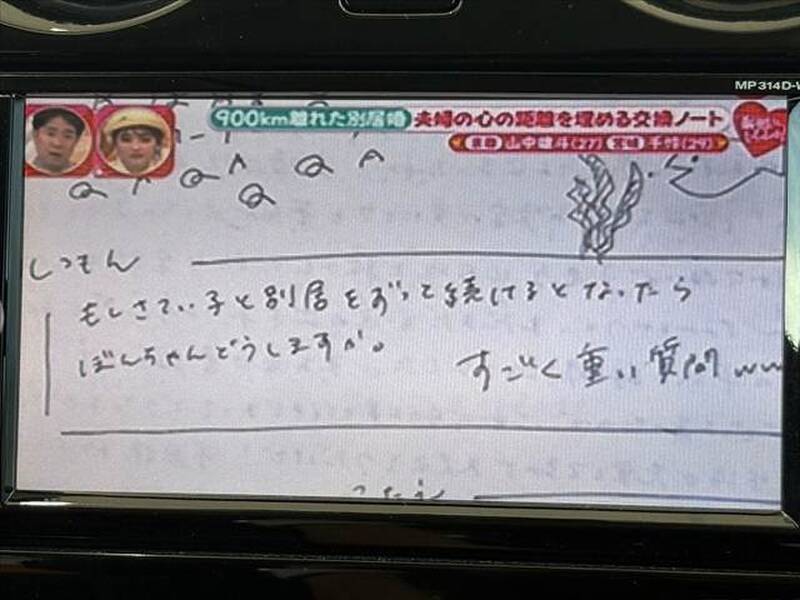 MP314D-W
900km離れた別居婚 夫婦の心の距離を埋める交換ノート
しつもん
もしさてぃ子と別居をずっと続けるとなったら
ぼんちゃんどうしますか。
すごく重い質問ww
こたえ